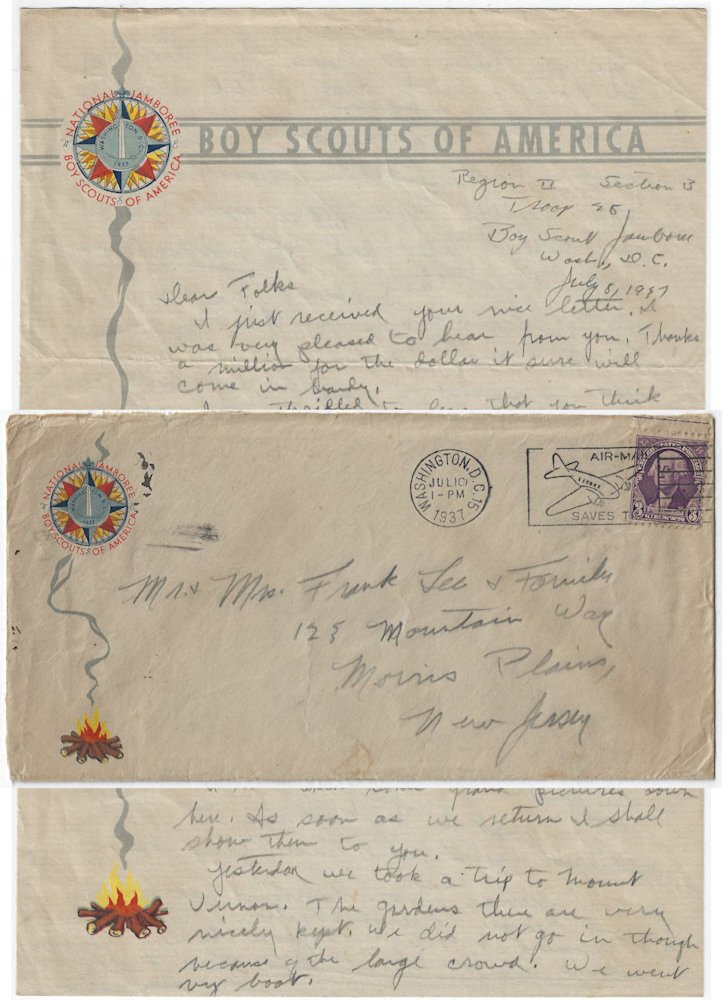 NATIONAL JAMBOREE
WASHINGTON D.C.
1937
BOY SCOUTS OF AMERICA
BOY SCOUTS OF AMERICA
Region II Section B
Troop
Boy Scout Jamboree
Wash., D.C.
July 8, 1937
Dear Folks
I just received your nice letter. I
was very pleased to hear from you. Thanks
a million for the dollar it sure will
come in handy.
thrilled to hear that you think
NATIONAL JAMBOREE
WASHINGTON D.C.
1937
BOY SCOUTS OF AMERICA
WASHINGTON, D.C. 15
JUL 10
1-PM
1937
AIR-MAIL
SAVES T
3 3
Mr. & Mrs. Frank Lee & Family
Mountain Way
Morris Plains,
New Jersey
some grand pictures down
here. As soon as we return I shall
show them to you.
Yesterday we took a trip to Mount
Vernon. The gardens there are very
nicely kept. We did not go in though
because of the large crowd. We went
by boat.